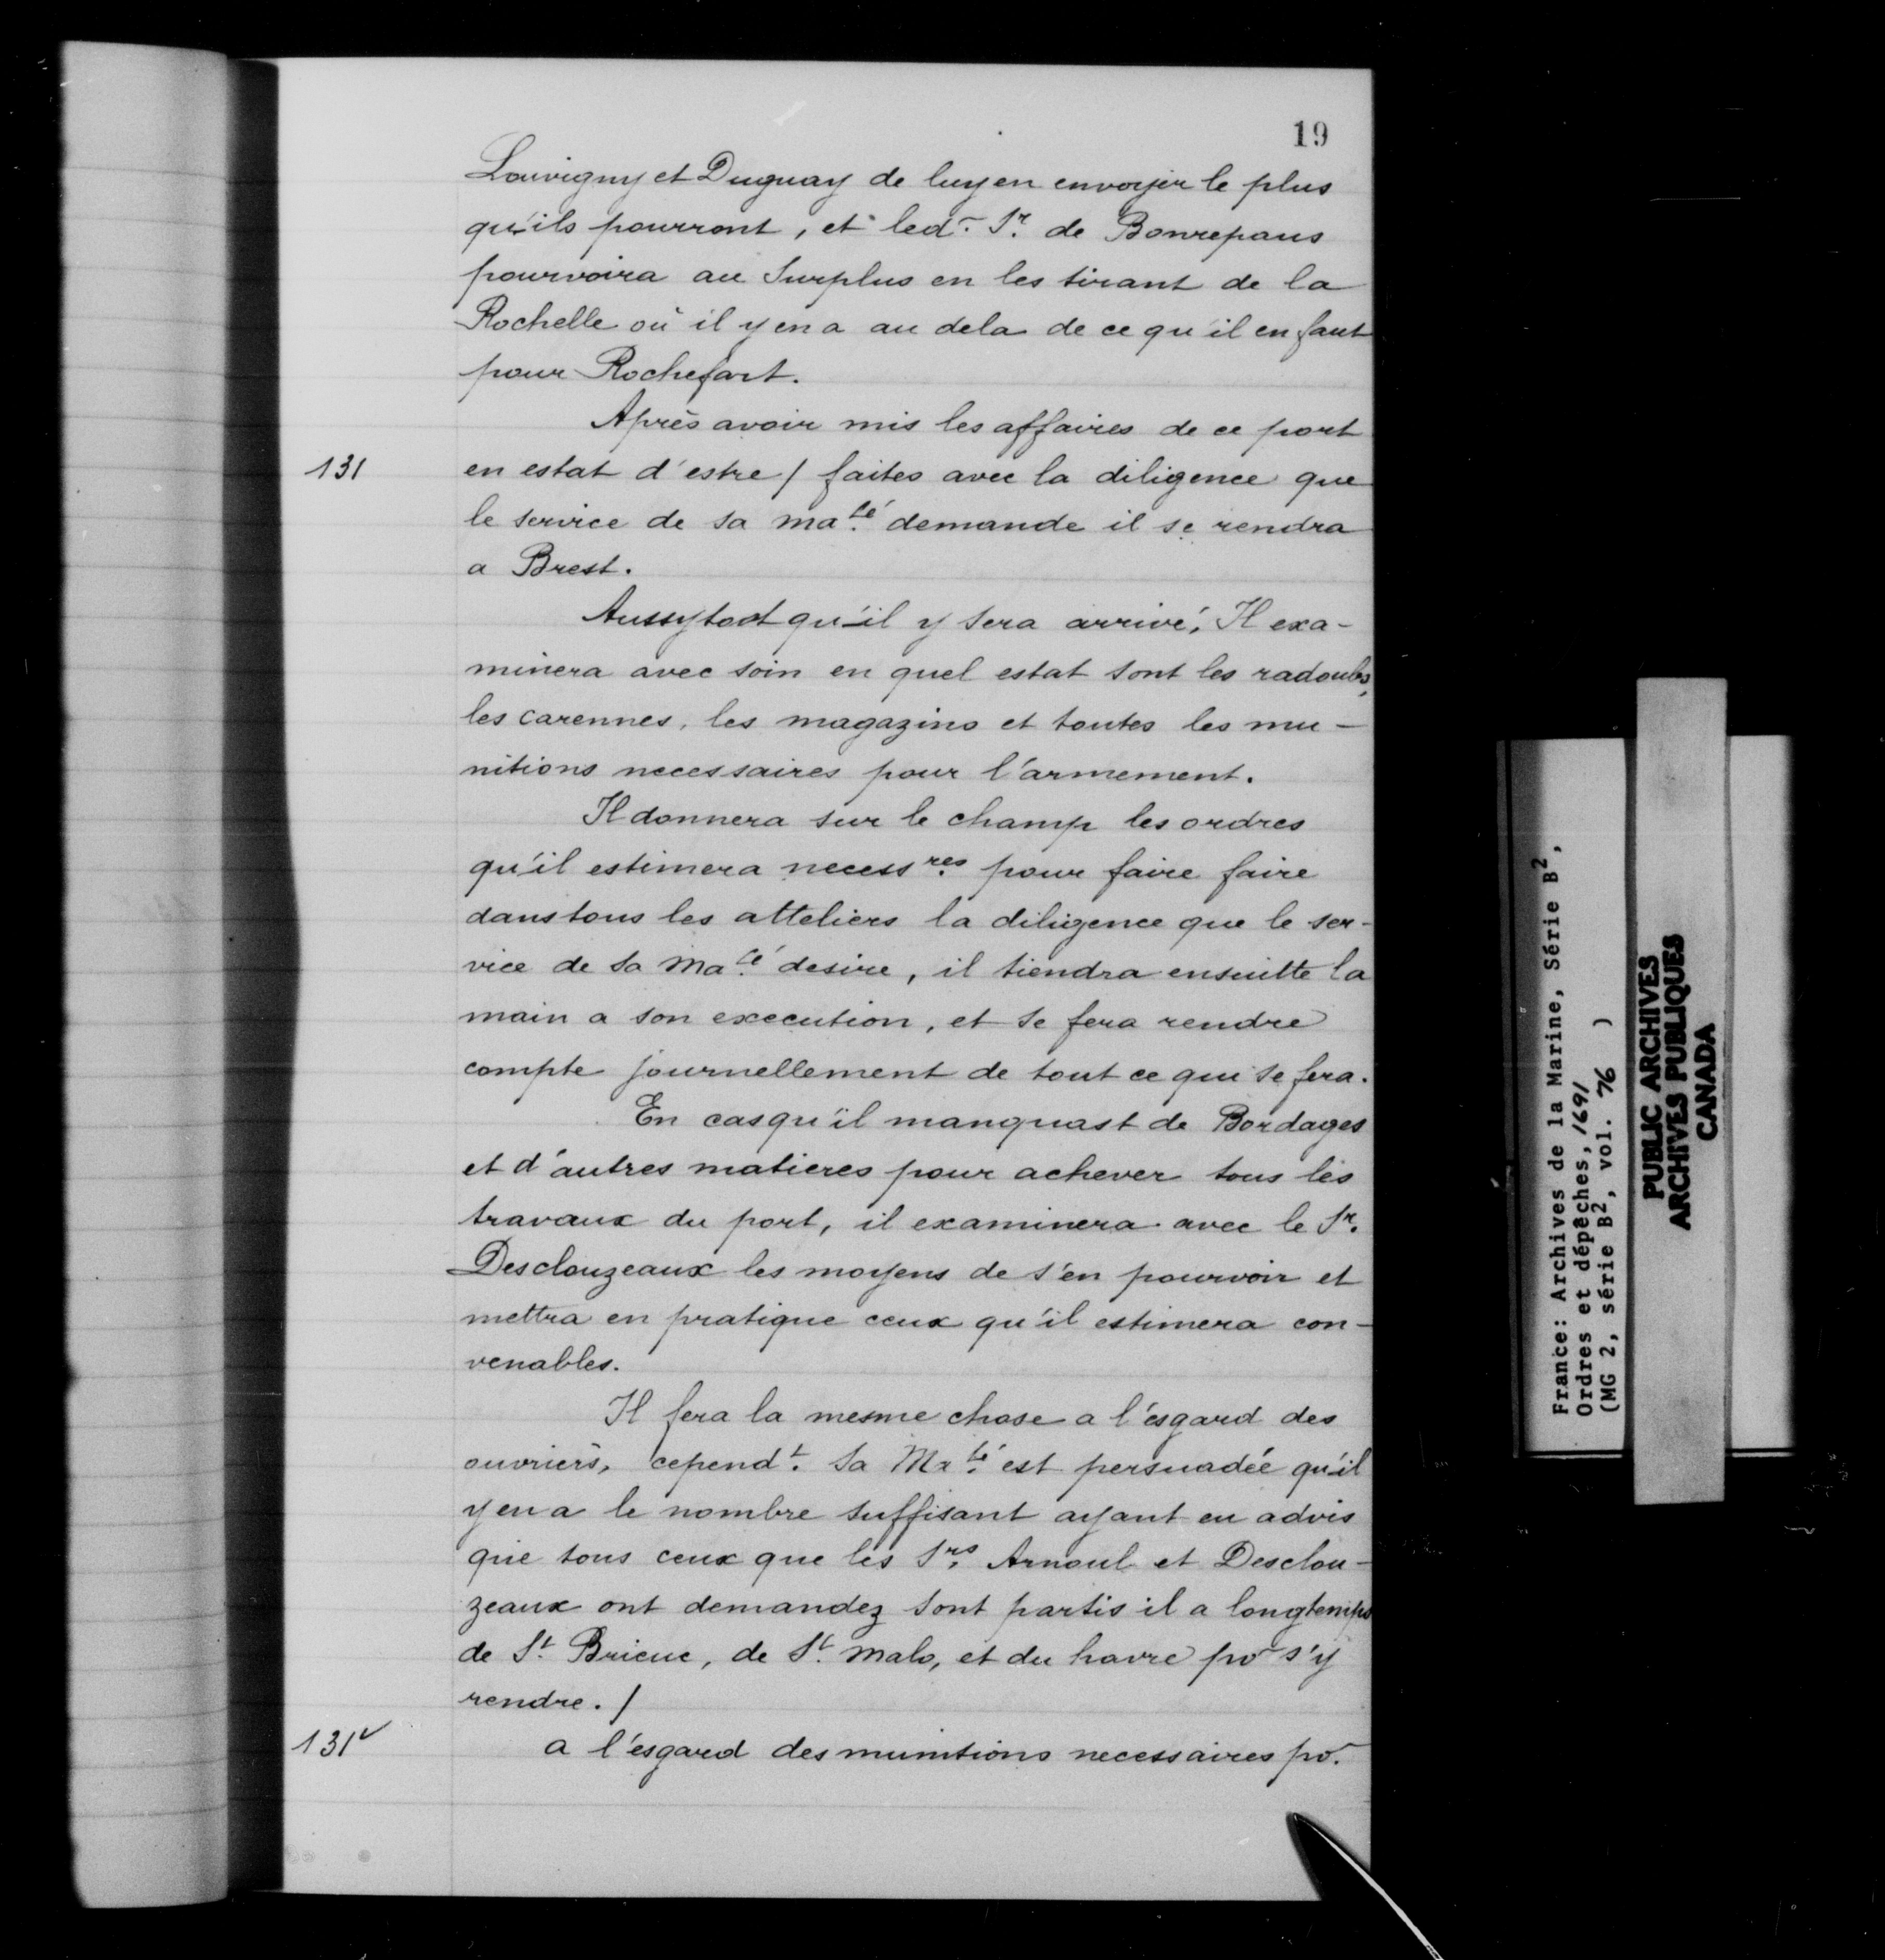 19
Louvigny et Duguay de luy en envoyer le plus
qu'ils pourront, et led. Sr. de Bonrepaus
pourvoira au surplus en les tirant de la
Rochelle où il y en a au dela de ce qu'il en faut
pour Rochefort.
Après avoir mis les affaires de ce port
131 en estat d'estre / faites avec la diligence que
le service de sa ma.té demande il se rendra
a Brest.
Aussytost qu'il y sera arrivé, Il exa-
minera avec soin en quel estat sont les radoubs,
les carennes, les magazins et toutes les mu-
nitions necessaires pour l'armement.
Il donnera sur le champ les ordres
qu'il estimera necess.res pour faire faire
dans tous les atteliers la diligence que le ser-
vice de sa Ma.té desire, il tiendra ensuitte la
main a son execution, et se fera rendre
compte journellement de tout ce qui se fera.
En cas qu'il manquast de Bordages
et d'autres matieres pour achever tous les
travaux du port, il examinera avec le Sr.
Desclouzeaux les moyens de s'en pourvoir et
mettra en pratique ceux qu'il estimera con-
venables.
Il fera la mesme chose a l'esgard des
ouvriers, cepend.t sa Ma.té est persuadée qu'il
y en a le nombre suffisant ayant eu advis
que tous ceux que les Srs. Arnoul et Desclou-
zeaux ont demandez sont partis il a longtemps
de St. Brieuc, de St. malo, et du havre po.r s'y
rendre. /
131v a l'esgard des munitions necessaires po.r
France: Archives de la Marine, Série B2,
Ordres et dépêches, 1691
(MG 2, série B2, vol. 76 )
PUBLIC ARCHIVES
ARCHIVES PUBLIQUES
CANADA